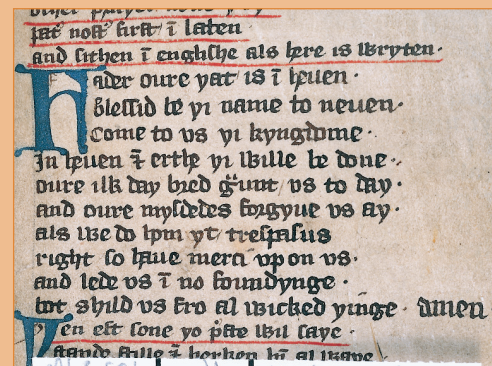 þat nost first ī laten
and sithen ī englishe als here is wryten·
Fader oure yat is ī heuen·
Blessid be yi name to neuen·
Come to vs yi kyngdome·
In heuen ⁊ erthe yi wille be done·
oure ilk day bred gūnt vs to day·
and oure mysdedes forgyue vs ay·
als we do hom yt trespasus
right so haue merci vp on vs·
and lede vs ī no foundynge·
bot shild vs fro al wicked yinge· amen
en eft sone yo pste wil saye·
stande stille ⁊ herken hī al waye·